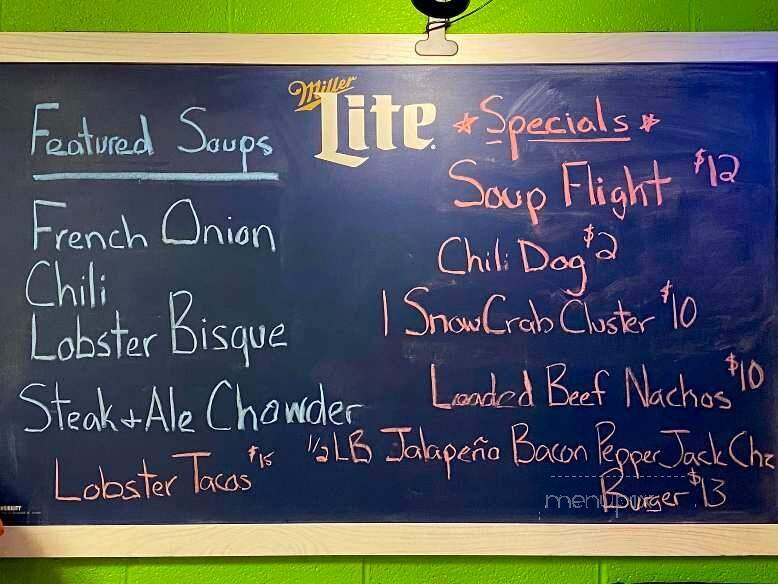 Miller
Lite
Featured Soups
French Onion
Chili
Lobster Bisque
Steak + Ale Chowder
Lobster Tacos $15
* Specials *
Soup Flight $12
Chili Dog $2
1 Snow Crab Cluster $10
Loaded Beef Nachos $10
1/2 LB Jalapeño Bacon Pepper Jack Chz
Burger $13
menupix